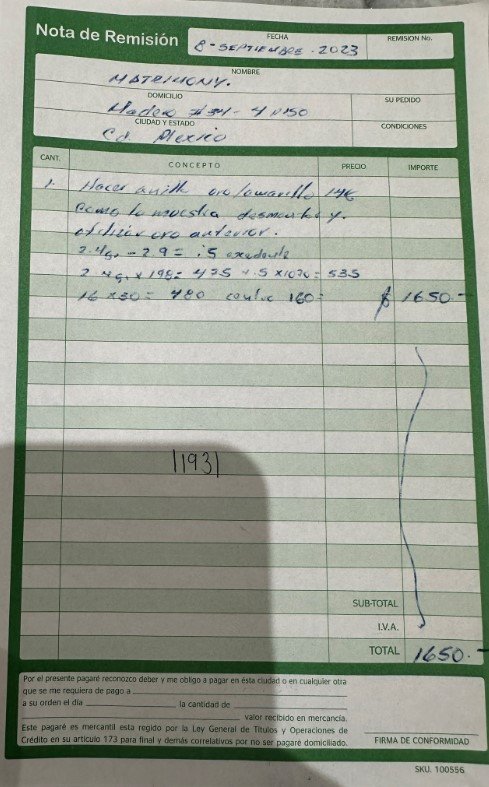 Nota de Remisión
FECHA
8-SEPTIEMBRE-2023
REMISION No.
NOMBRE
MATRIMONY.
DOMICILIO
SU PEDIDO
Madero 4 piso
CIUDAD Y ESTADO
CONDICIONES
Cd. Mexico
CANT. CONCEPTO PRECIO IMPORTE
1. Hacer anillo oro/amarillo 14K
como la muestra desmontar y.
utilizar oro anterior.
2.4gr - 2.9 = .5 excedente
2.4gr x 198 = 475 + .5 x 1070 = 535
16 x 30 = 480 160 = $ 1650-
11931
SUB-TOTAL
I.V.A.
TOTAL 1650.-
Por el presente pagaré reconozco deber y me obligo a pagar en ésta ciudad o en cualquier otra
que se me requiera de pago a
a su orden el día la cantidad de
valor recibido en mercancía.
Este pagaré es mercantil esta regido por la Ley General de Títulos y Operaciones de
Crédito en su artículo 173 para final y demás correlativos por no ser pagaré domiciliado.
FIRMA DE CONFORMIDAD
SKU. 100556